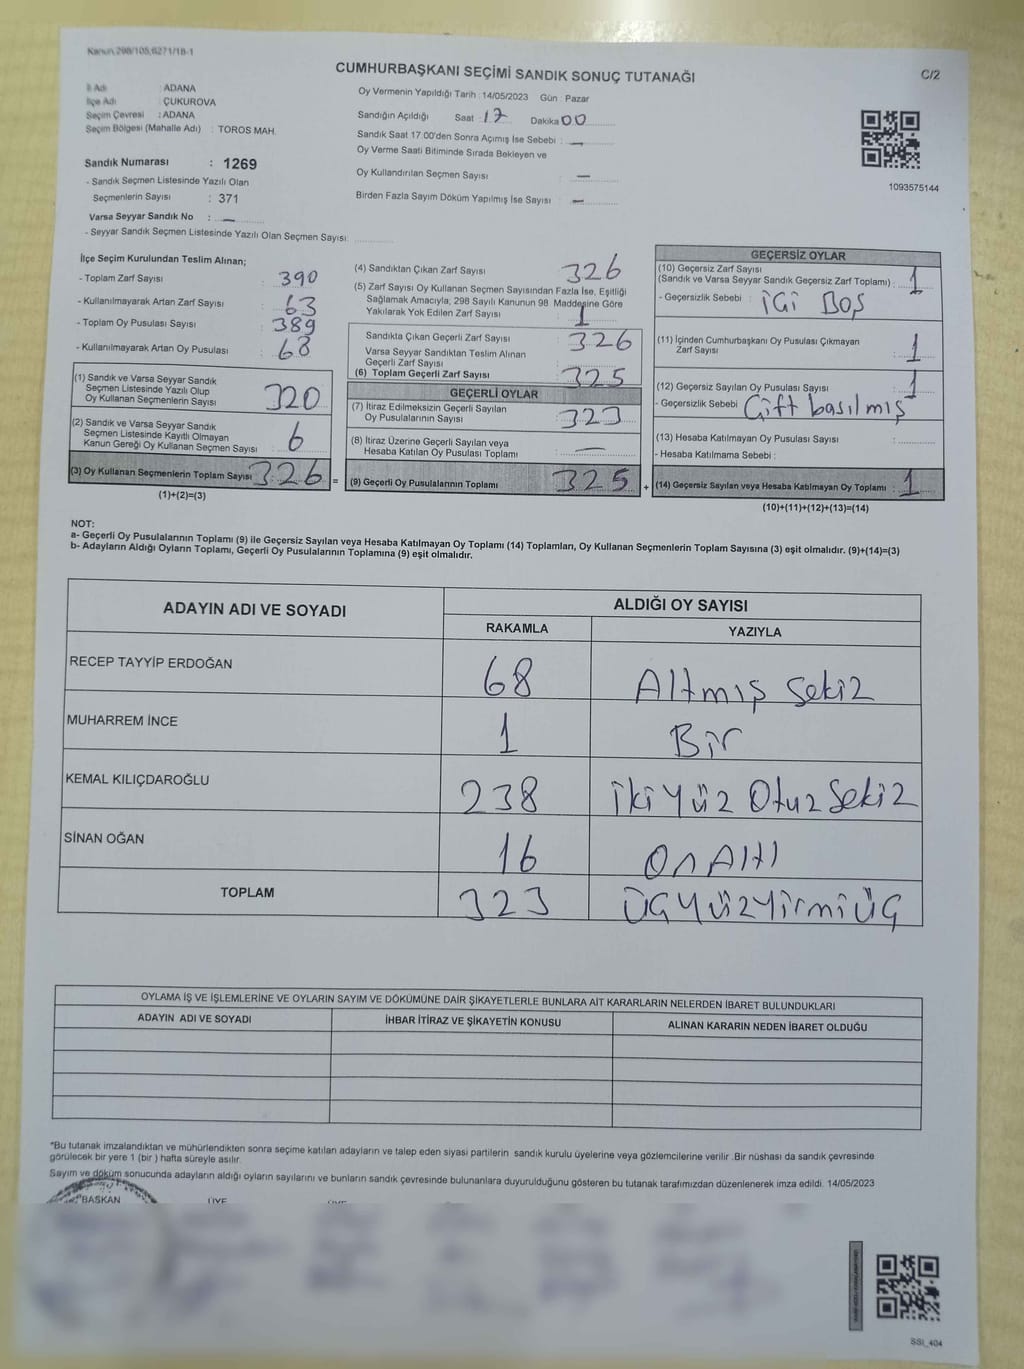 Kanun 298/105,6271/18-1
CUMHURBAŞKANI SEÇİMİ SANDIK SONUÇ TUTANAĞI
C/2
İl Adı : ADANA
İlçe Adı : ÇUKUROVA
Seçim Çevresi : ADANA
Seçim Bölgesi (Mahalle Adı) : TOROS MAH.
Sandık Numarası : 1269
- Sandık Seçmen Listesinde Yazılı Olan
Seçmenlerin Sayısı : 371
Varsa Seyyar Sandık No : -
- Seyyar Sandık Seçmen Listesinde Yazılı Olan Seçmen Sayısı:
Oy Vermenin Yapıldığı Tarih : 14/05/2023 Gün : Pazar
Sandığın Açıldığı Saat : 17 Dakika 00
Sandık Saat 17.00'den Sonra Açımış İse Sebebi : -
Oy Verme Saati Bitiminde Sırada Bekleyen ve
Oy Kullandırılan Seçmen Sayısı -
Birden Fazla Sayım Döküm Yapılmış İse Sayısı : -
1093575144
İlçe Seçim Kurulundan Teslim Alınan;
- Toplam Zarf Sayısı : 390
- Kullanılmayarak Artan Zarf Sayısı : 63
- Toplam Oy Pusulası Sayısı : 389
- Kullanılmayarak Artan Oy Pusulası : 68
(1) Sandık ve Varsa Seyyar Sandık
Seçmen Listesinde Yazılı Olup
Oy Kullanan Seçmenlerin Sayısı : 320
(2) Sandık ve Varsa Seyyar Sandık
Seçmen Listesinde Kayıtlı Olmayan
Kanun Gereği Oy Kullanan Seçmen Sayısı : 6
(3) Oy Kullanan Seçmenlerin Toplam Sayısı : 326
(1)+(2)=(3)
(4) Sandıktan Çıkan Zarf Sayısı : 326
(5) Zarf Sayısı Oy Kullanan Seçmen Sayısından Fazla İse, Eşitliği
Sağlamak Amacıyla, 298 Sayılı Kanunun 98 Maddesine Göre
Yakılarak Yok Edilen Zarf Sayısı : 1
Sandıkta Çıkan Geçerli Zarf Sayısı : 326
Varsa Seyyar Sandıktan Teslim Alınan
Geçerli Zarf Sayısı
(6) Toplam Geçerli Zarf Sayısı : 325
GEÇERLİ OYLAR
(7) İtiraz Edilmeksizin Geçerli Sayılan
Oy Pusulalarının Sayısı : 323
(8) İtiraz Üzerine Geçerli Sayılan veya
Hesaba Katılan Oy Pusulası Toplamı : -
= (9) Geçerli Oy Pusulalarının Toplamı : 325 +
GEÇERSİZ OYLAR
(10) Geçersiz Zarf Sayısı
(Sandık ve Varsa Seyyar Sandık Geçersiz Zarf Toplamı) : 1
- Geçersizlik Sebebi : İÇİ BOŞ
(11) İçinden Cumhurbaşkanı Oy Pusulası Çıkmayan
Zarf Sayısı : 1
(12) Geçersiz Sayılan Oy Pusulası Sayısı : 1
- Geçersizlik Sebebi Çift basılmış
(13) Hesaba Katılmayan Oy Pusulası Sayısı :
- Hesaba Katılmama Sebebi :
(14) Geçersiz Sayılan veya Hesaba Katılmayan Oy Toplamı : 1
(10)+(11)+(12)+(13)=(14)
NOT:
a- Geçerli Oy Pusulalarının Toplamı (9) ile Geçersiz Sayılan veya Hesaba Katılmayan Oy Toplamı (14) Toplamları, Oy Kullanan Seçmenlerin Toplam Sayısına (3) eşit olmalıdır. (9)+(14)=(3)
b- Adayların Aldığı Oyların Toplamı, Geçerli Oy Pusulalarının Toplamına (9) eşit olmalıdır.
ADAYIN ADI VE SOYADI
ALDIĞI OY SAYISI
RAKAMLA YAZIYLA
RECEP TAYYİP ERDOĞAN 68 Altmış sekiz
MUHARREM İNCE 1 Bir
KEMAL KILIÇDAROĞLU 238 iki Yüz Otuz Sekiz
SİNAN OĞAN 16 On Altı
TOPLAM 323 ÜçYüzYirmiÜç
OYLAMA İŞ VE İŞLEMLERİNE VE OYLARIN SAYIM VE DÖKÜMÜNE DAİR ŞİKAYETLERLE BUNLARA AİT KARARLARIN NELERDEN İBARET BULUNDUKLARI
ADAYIN ADI VE SOYADI İHBAR İTİRAZ VE ŞİKAYETİN KONUSU ALINAN KARARIN NEDEN İBARET OLDUĞU
*Bu tutanak imzalandıktan ve mühürlendikten sonra seçime katılan adayların ve talep eden siyasi partilerin sandık kurulu üyelerine veya gözlemcilerine verilir .Bir nüshası da sandık çevresinde
görülecek bir yere 1 (bir ) hafta süreyle asılır.
Sayım ve döküm sonucunda adayların aldığı oyların sayılarını ve bunların sandık çevresinde bulunanlara duyurulduğunu gösteren bu tutanak tarafımızdan düzenlenerek imza edildi. 14/05/2023
BAŞKAN ÜYE
SSI_404